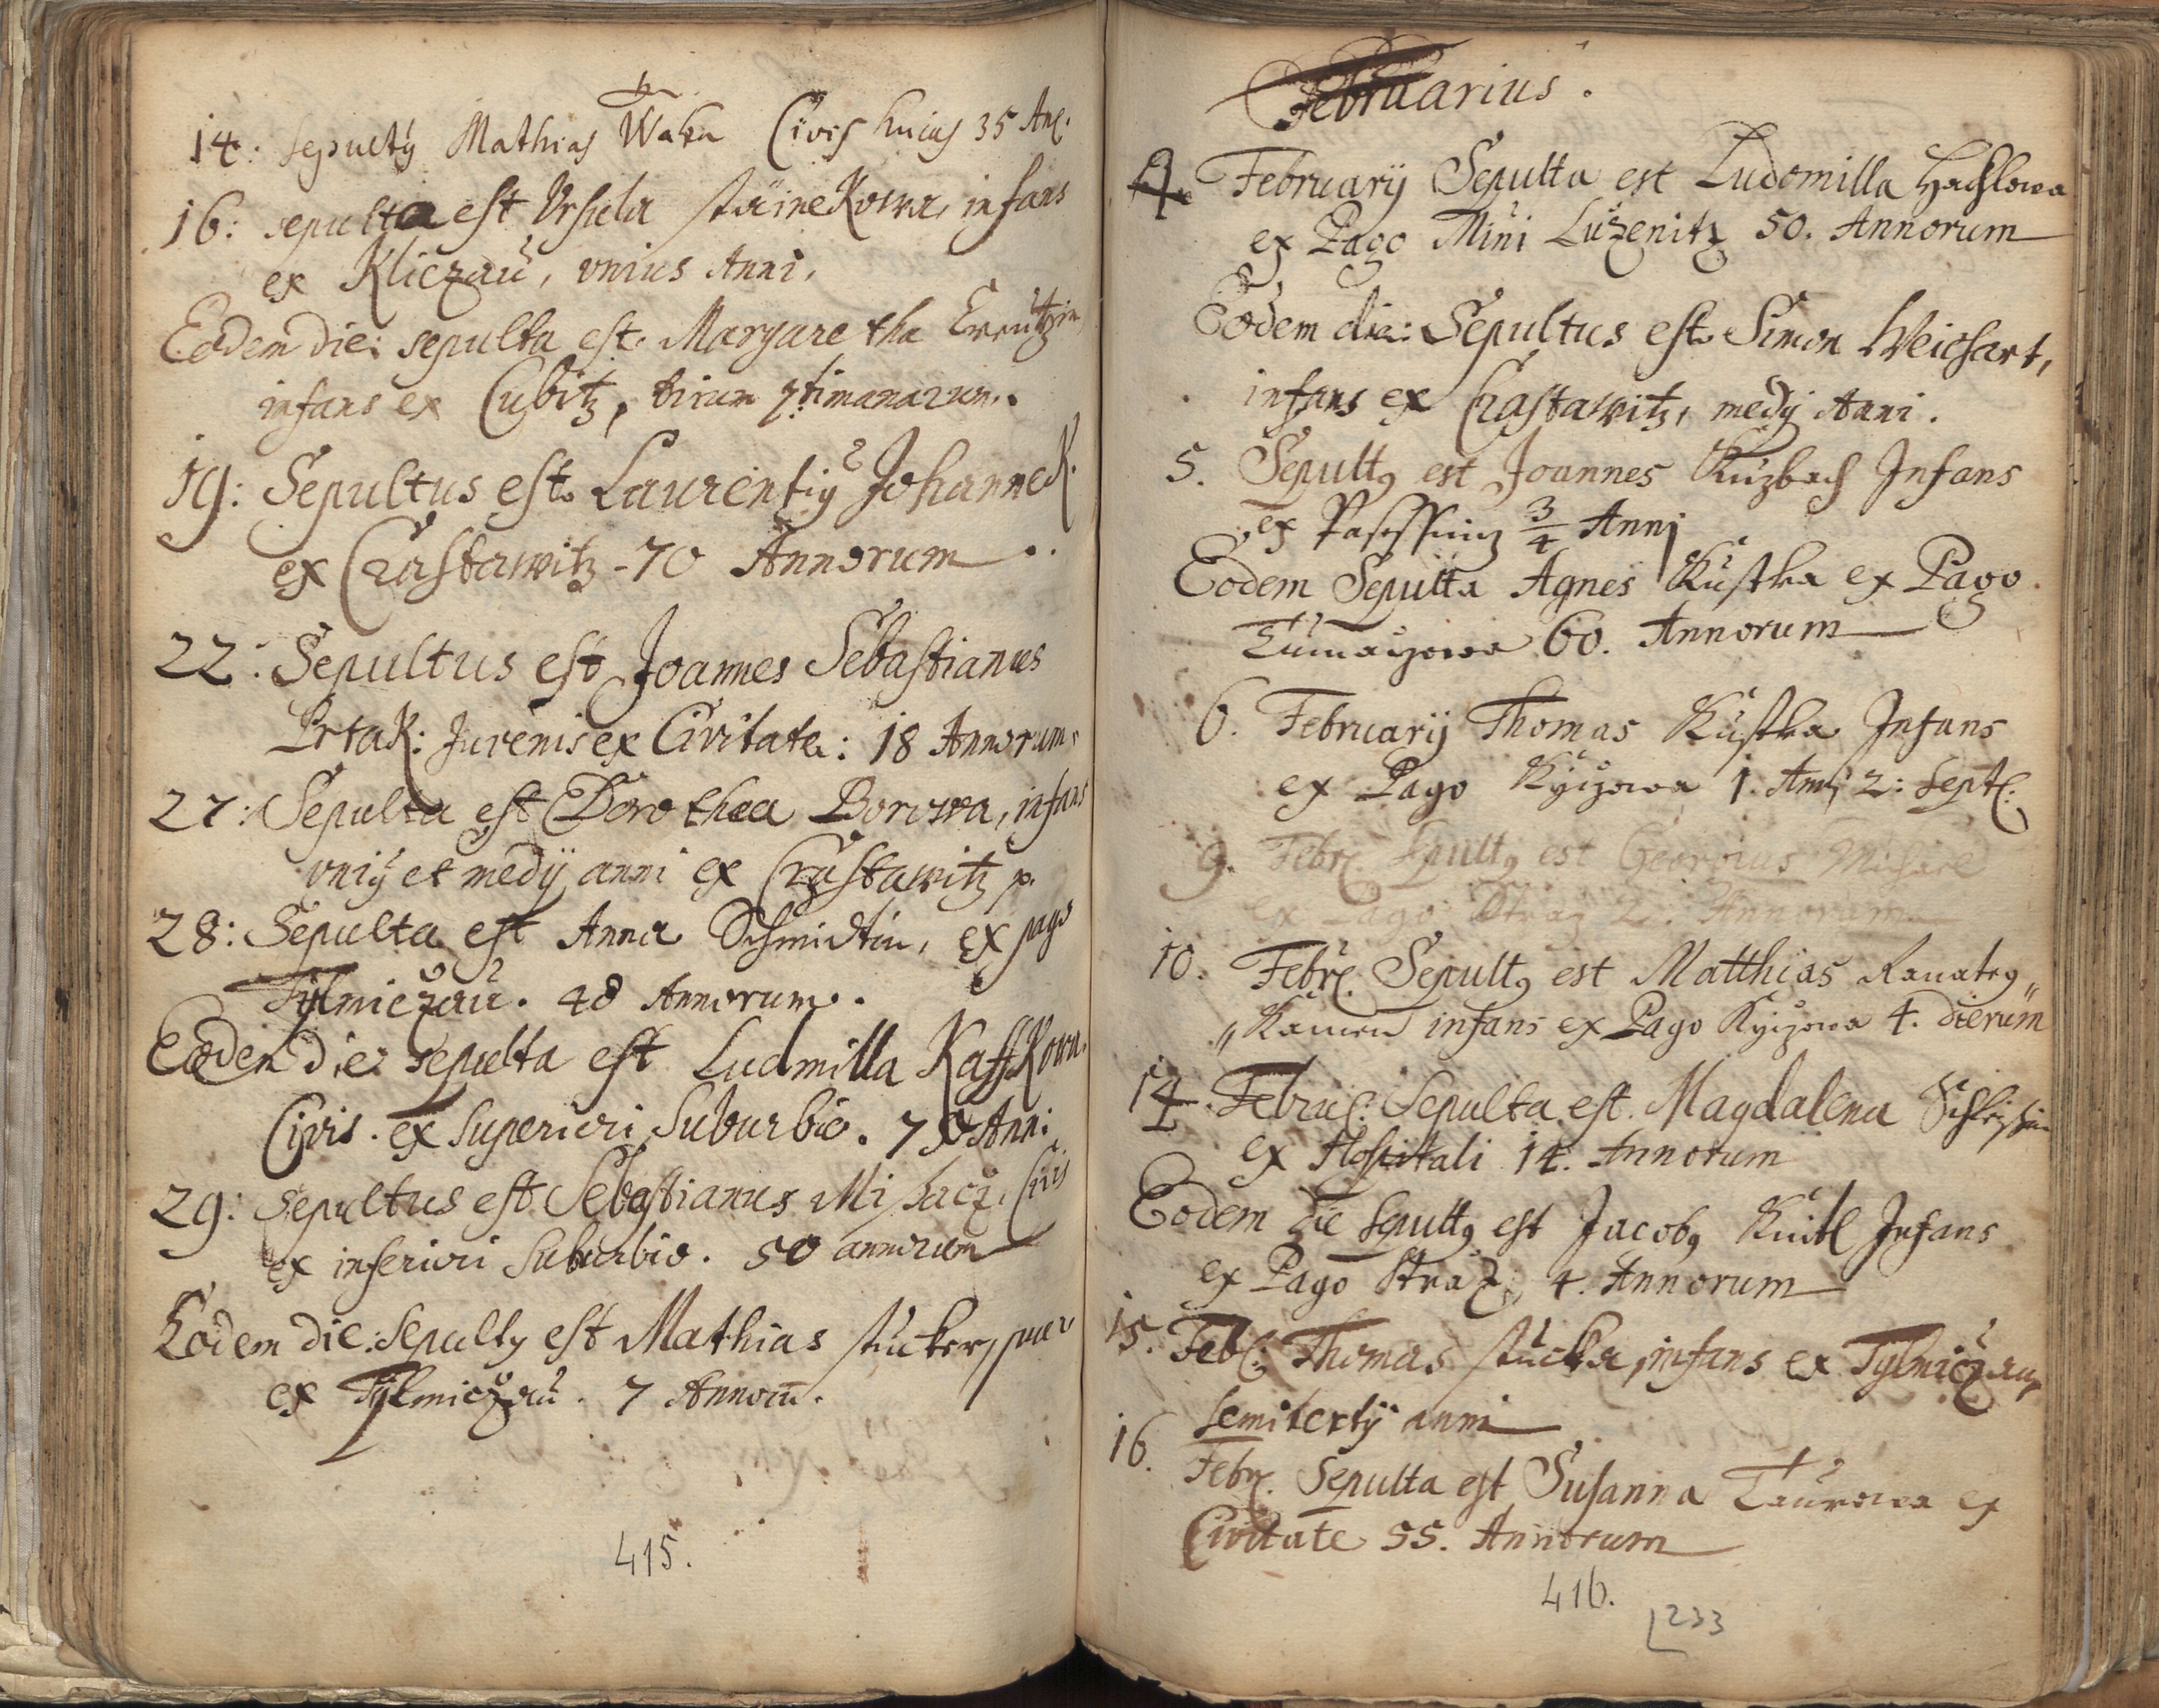 14: sepultꝰ Mathias Waka Civis huius 35 An.
16: sepulta est Vrsula staineKowa, infans
ex Kliczau, vnius Anni.
Eodem die: sepulta est. Margaretha Creutzin
infans ex Cubitz, trium 7timanarum.
19: Sepultus est Laurentiꝰ Johannek
ex Chrastawitz - 70 Annorum
22: Sepultus est Joannes Sebastianus
PrtaK: Juvenis ex Civitate: 18 Annorum,
27: Sepulta est Dorothea Borowa, infans
vniꝰ et medij anni ex Chrastawitz p.
28: Sepulta est Anna Schmidtin, ex pago
Tylmiczau. 48 Annorum.
Eodem die sepulta est Ludmilla KaffKowa
Civis. ex superiori Suburbio. 70 Anni
29: Sepultus est Sebastianus Mihacz, Civis
ex inferiori Suburbio. 50 annorum
Eodem die: Sepultꝰ est Mathias stucker, puer
ex Tylmiczau. 7 Annorū.
415.
Februarius.
4. February Sepulta est Ludomilla Hachlowa
ex Pago Mini Luzenitz 50. Annorum
Eodem die: Sepultus est Simon Weichart,
infans ex Chrastawitz, medij Anni.
5. Sepultꝰ est Joannes Kuzbach Infans
ex 3/4 Anni
Eodem Sepulta Agnes Kustka ex Pago
60. Annorum
6. Februarij Thomas Kustka Infans
ex Pago Kyczowa 1. Anni 2: Sept:
9. Febr: Sepultꝰ est Georgius Michael
ex Pago Straz 2. Annorum
10. Febr: Sepultꝰ est Matthias
infans ex Pago Kyczowa 4. dierum
14. Febru: Sepulta est. Magdalena
ex Hospitali 14. Annorum
Eodem die Sepultꝰ est Jacobꝰ Knitl Infans
ex Pago Straz, 4. Annorum
15. Feb: Thomas stucka, infans ex Tylmiczau,
semitertij anni
16. Febr. Sepulta est Susanna Taurowa ex
Civitate 55. Annorum
416.
233